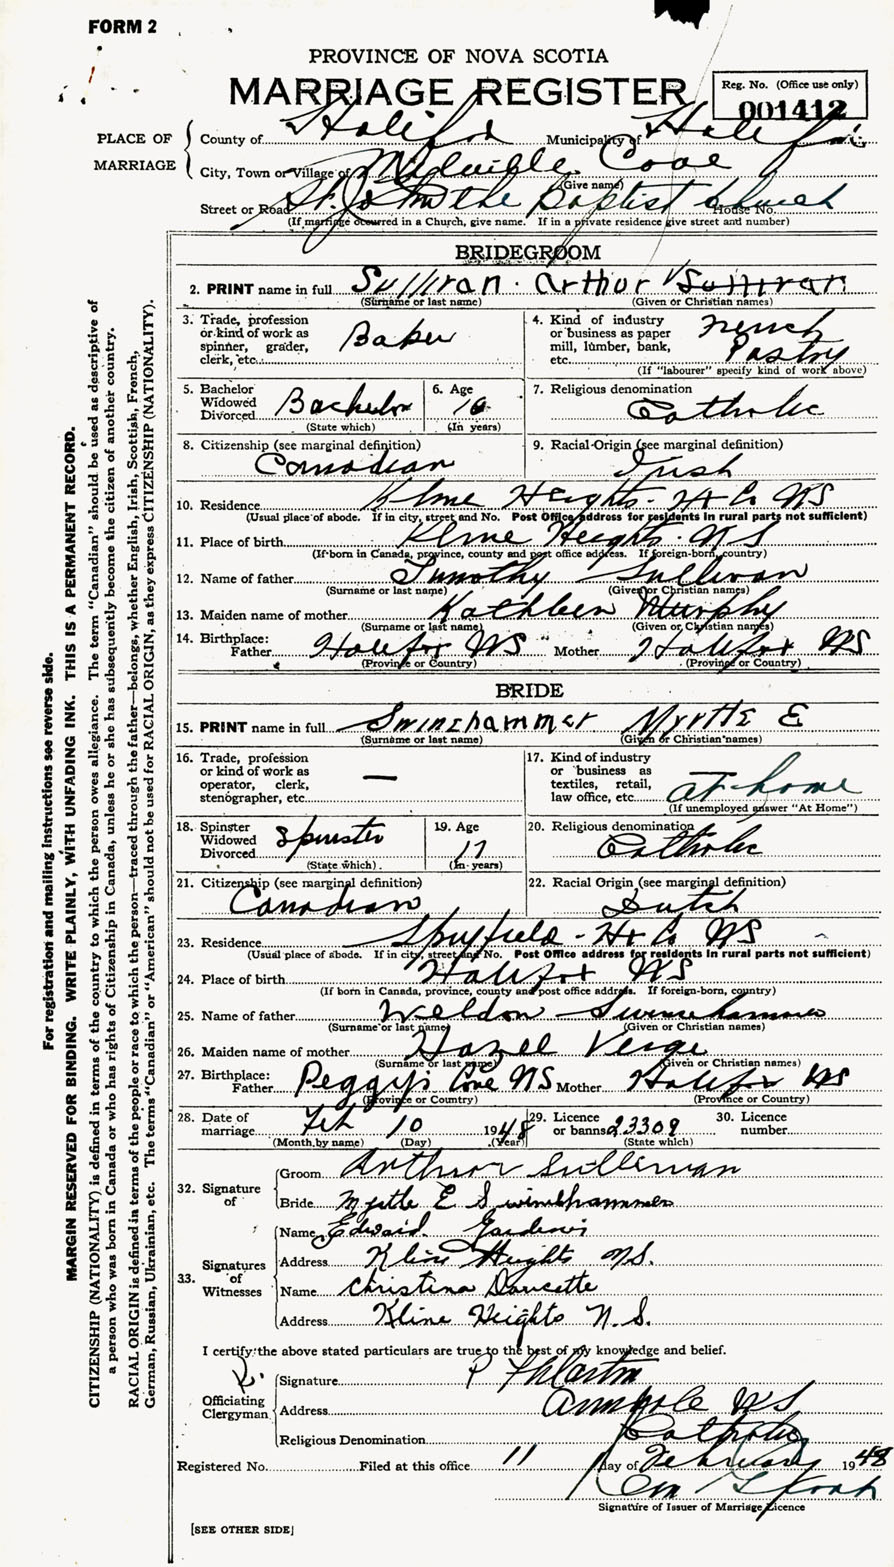 FORM 2
PROVINCE OF NOVA SCOTIA
MARRIAGE REGISTER
Reg. No. (Office use only)
001412
PLACE OF MARRIAGE
County of Halifax Municipality of Halifax
City, Town or Village of Melville Cove
(Give name)
Street or Road St. John the Baptist Church House No.
(If marriage occurred in a Church, give name. If in a private residence give street and number)
BRIDEGROOM
2. PRINT name in full Sullivan Arthur Sullivan
(Surname or last name) (Given or Christian names)
3. Trade, profession or kind of work as spinner, grader, clerk, etc. Baker
4. Kind of industry or business as paper mill, lumber, bank, etc. French Pastry
(If "labourer" specify kind of work above)
5. Bachelor Widowed Divorced Bachelor
(State which)
6. Age
(In years)
7. Religious denomination Catholic
8. Citizenship (see marginal definition) Canadian
9. Racial Origin (see marginal definition) Irish
10. Residence Kline Heights - Hx Co NS
(Usual place of abode. If in city, street and No. Post Office address for residents in rural parts not sufficient)
11. Place of birth Kline Heights - NS
(If born in Canada, province, county and post office address. If foreign-born, country)
12. Name of father Timothy Sullivan
(Surname or last name) (Given or Christian names)
13. Maiden name of mother Kathleen Murphy
(Surname or last name) (Given or Christian names)
14. Birthplace: Father Halifax NS Mother Halifax NS
(Province or Country) (Province or Country)
BRIDE
15. PRINT name in full Swinehammer Myrtle E
(Surname or last name) (Given or Christian names)
16. Trade, profession or kind of work as operator, clerk, stenographer, etc. —
17. Kind of industry or business as textiles, retail, law office, etc. at home
(If unemployed answer "At Home")
18. Spinster Widowed Divorced Spinster
(State which)
19. Age 17
(In years)
20. Religious denomination Catholic
21. Citizenship (see marginal definition) Canadian
22. Racial Origin (see marginal definition) Dutch
23. Residence Spryfield - Hx Co NS
(Usual place of abode. If in city, street and No. Post Office address for residents in rural parts not sufficient)
24. Place of birth Halifax NS
(If born in Canada, province, county and post office address. If foreign-born, country)
25. Name of father Weldon Swinehammer
(Surname or last name) (Given or Christian names)
26. Maiden name of mother Hazel Verge
(Surname or last name) (Given or Christian names)
27. Birthplace: Father Peggy's Cove NS Mother Halifax NS
(Province or Country) (Province or Country)
28. Date of marriage Feb 10 1948
(Month by name) (Day) (Year)
29. Licence or banns 23309
(State which)
30. Licence number
32. Signature of
Groom Arthur Sullivan
Bride Myrtle E Swinehammer
33. Signatures of Witnesses
Name Edward
Address Kline Heights NS.
Name Christina Doucette
Address Kline Heights N.S.
I certify the above stated particulars are true to the best of my knowledge and belief.
Officiating Clergyman
Signature P
Address Armdale NS
Religious Denomination Catholic
Registered No. Filed at this office 11 day of February 1948
Signature of Issuer of Marriage Licence
[SEE OTHER SIDE]
For registration and mailing instructions see reverse side.
MARGIN RESERVED FOR BINDING. WRITE PLAINLY, WITH UNFADING INK. THIS IS A PERMANENT RECORD.
CITIZENSHIP (NATIONALITY) is defined in terms of the country to which the person owes allegiance. The term "Canadian" should be used as descriptive of
a person who was born in Canada or who has rights of Citizenship in Canada, unless he or she has subsequently become the citizen of another country.
RACIAL ORIGIN is defined in terms of the people or race to which the person—traced through the father—belongs, whether English, Irish, Scottish, French,
German, Russian, Ukrainian, etc. The terms "Canadian" or "American" should not be used for RACIAL ORIGIN, as they express CITIZENSHIP (NATIONALITY).